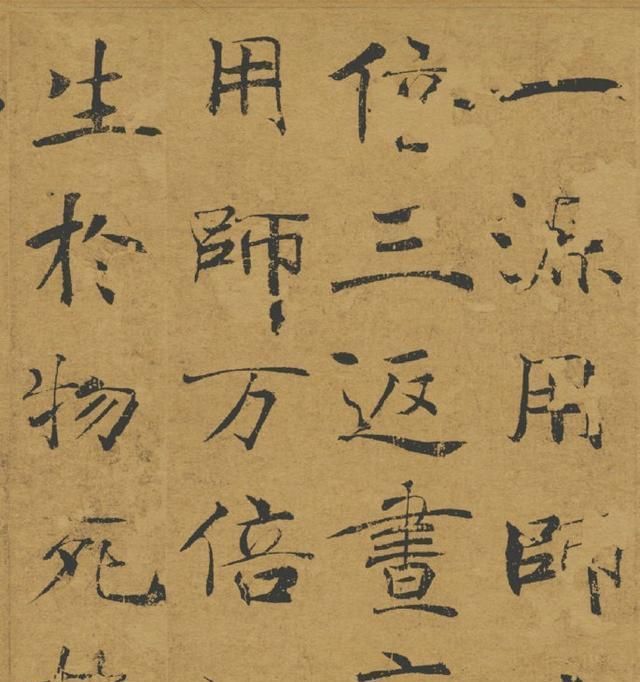 一源用師
倍三返晝
用師万倍
生於物死